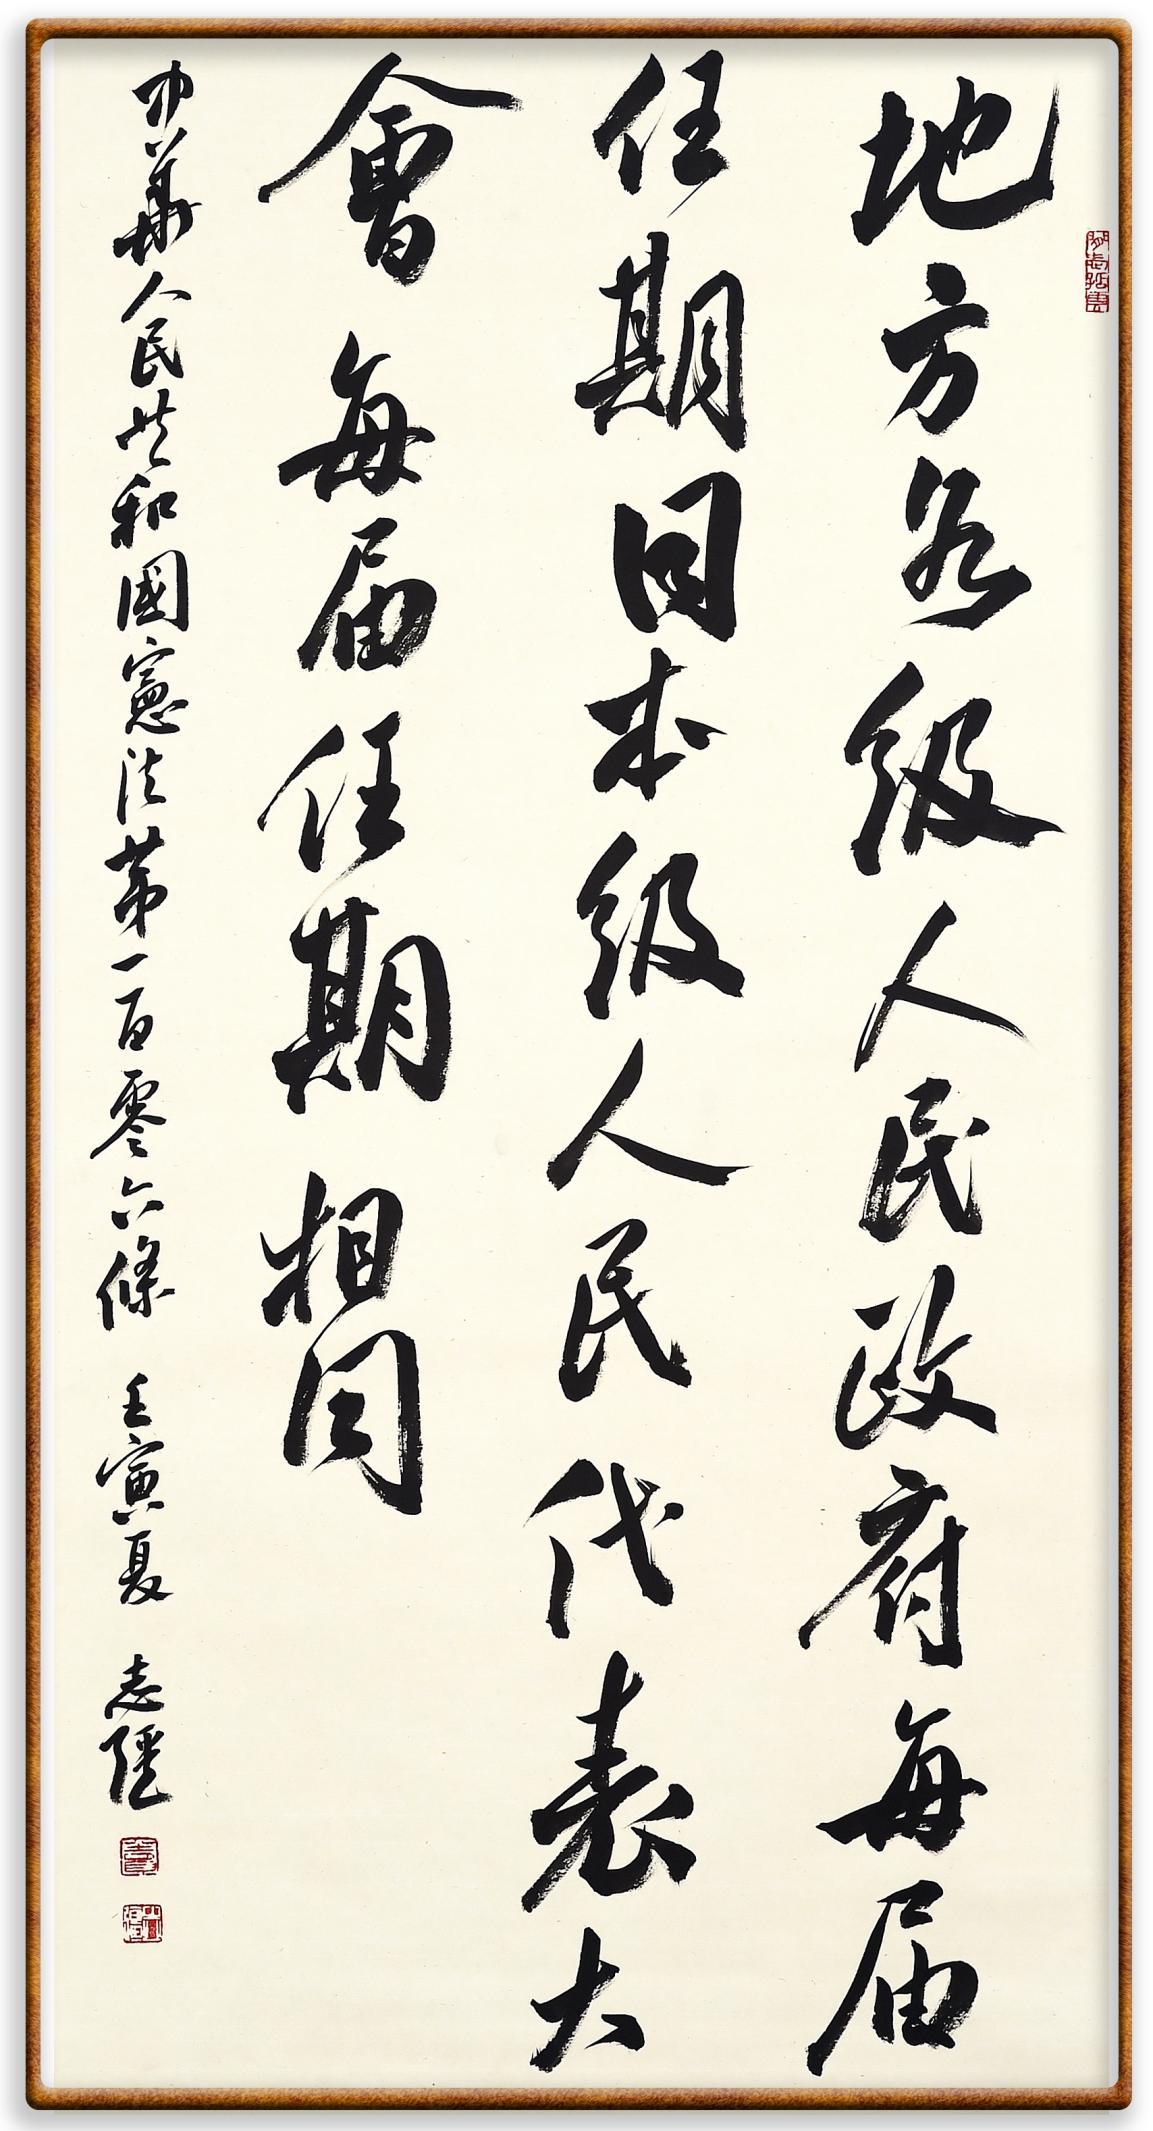 地方各级人民政府每届
任期同本级人民代表大
會每届任期相同
中華人民共和國憲法第一百零六條 壬寅夏 志隆